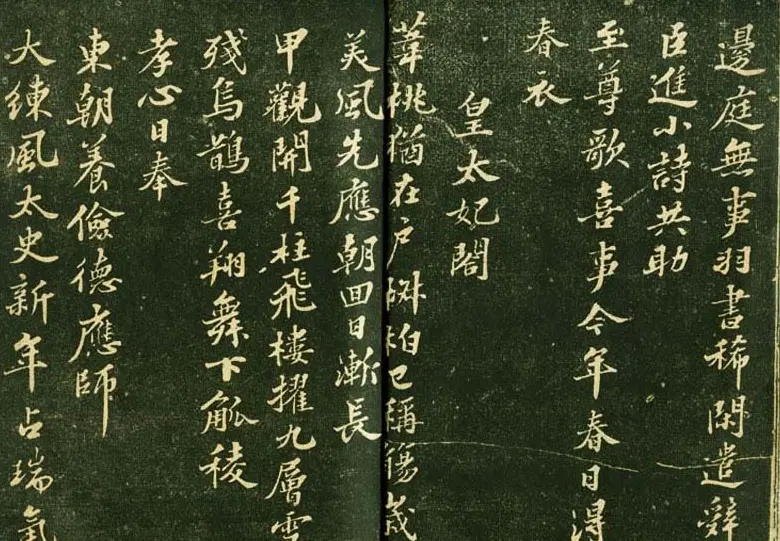 邊庭無事羽書稀閑遣辭
臣進小詩共助
至尊歌喜事今年春日得
春衣
皇太妃閣
葦桃猶在戶椒柏已稱觴歲
美風先應朝回日漸長
甲觀開千柱飛樓擢九層雪
殘烏鵲喜翔舞下觚稜
孝心日奉
東朝養儉德應師
大練風太史新年占瑞氣